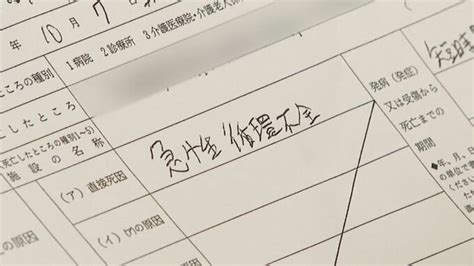 年 10 月 7
ころの種別 1病院 2診療所 3介護医療院・介護老人保
したところ
死亡したところの種別1~5)
施設の名称
(ア)直接死因
急性循環不全
(イ)(ア)の原因
の原因
発病(発症)
又は受傷から
死亡までの
期間
短時
◆年、月、日
の単位で書